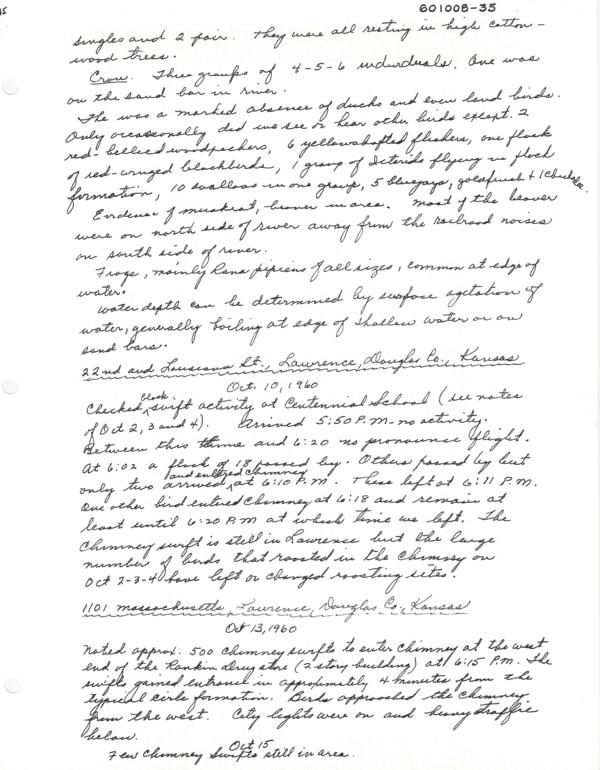 601008-35
singles and 2 pair. They were all resting in high cotton-
wood trees.
Crow. Three groups of 4-5-6 individuals. One was
on the sand bar in river.
The was a marked absence of ducks and even land birds.
Only occasionally did we see or hear other birds except. 2
red-bellied woodpeckers, 6 yellowshafted flickers, one flock
of red-winged blackbirds, 1 group of Icterids flying in flock
formation, 10 swallows in one group, 5 bluejays, goldfinch + 1 chickadee.
Evidence of muskrat, beaver in area. Most of the beaver
were on north side of river away from the railroad noises
on south side of river.
Frogs, mainly Rana pipiens of all sizes, common at edge of
water.
Water depth can be determined by surface agitation of
water, generally boiling at edge of shallow water or on
sand bars.
22nd and Louisiana St., Lawrence, Douglas Co., Kansas
Oct. 10, 1960
Checked ^chk. swift activity at Centennial School (see notes
of Oct 2, 3 and 4). Arrived 5:50 P.M. - no activity.
Between this time and 6:20 no pronounce flight.
At 6:02 a flock of 18 passed by. Others passed by but
only two arrived ^and entered chimney at 6:10 P.M. These left at 6:11 P.M.
One other bird entered chimney at 6:18 and remain at
least until 6:20 P.M at which time we left. The
chimney swift is still in Lawrence but the large
number of birds that roosted in the chimney on
Oct 2-3-4 have left or changed roosting sites.
1101 Massachusetts, Lawrence, Douglas Co., Kansas
Oct 13, 1960
Noted approx. 500 chimney swifts to enter chimney at the west
end of the Rankin Drug store (2 story building) at 6:15 P.M. The
swifts gained entrance in approximately 4 minutes from the
typical circle formation. Birds approached the chimney
from the west. City lights were on and heavy traffic
below.
Oct 15
Few Chimney Swifts still in area.